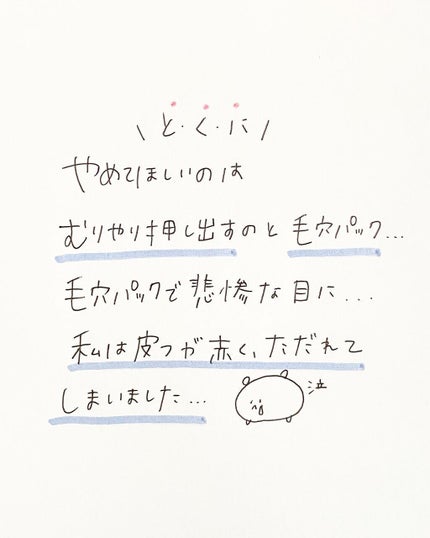 \ と・く・に /
やめてほしいのは
むりやり押し出すのと 毛穴パック...
毛穴パックで悲惨な目に...
私は皮フが赤く、ただれて
しまいました... 泣